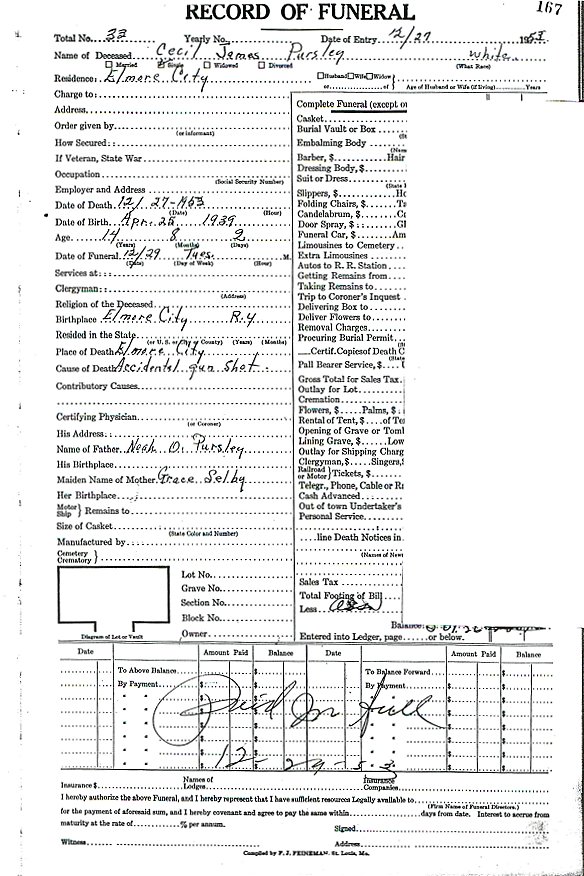 RECORD OF FUNERAL
167
Total No. 33 Yearly No. Date of Entry 12/27 1953
Name of Deceased Cecil James Pursley white
Married Single Widowed Divorced (What Race)
Residence: Elmore City Husband Wife Widow or Age of Husband or Wife (if living) Years
Charge to:
Address
Order given by
(or informant)
How Secured:
If Veteran, State War
Occupation
(Social Security Number)
Employer and Address
Date of Death 12/27-1953
(Date) (Hour)
Date of Birth Apr. 25 1939
Age 14 8 2
(Years) (Months) (Days)
Date of Funeral 12/29 Tues. M.
(Date) (Day of Week) (Hour)
Services at:
Clergyman:
(Address)
Religion of the Deceased
Birthplace Elmore City R.4
Resided in the State
(or U. S. or City or County) (Years) (Months)
Place of Death Elmore City
Cause of Death Accidental gun shot
Contributory Causes
Certifying Physician
(or Coroner)
His Address
Name of Father Noah O. Pursley
His Birthplace
Maiden Name of Mother Grace Selby
Her Birthplace
Motor Ship } Remains to
Size of Casket
(State Color and Number)
Manufactured by
Cemetery Crematory }
Lot No.
Grave No.
Section No.
Block No.
Owner
Diagram of Lot or Vault
Complete Funeral (except o
Casket
Burial Vault or Box
(St
Embalming Body
(Nam
Barber, $ Hair
Dressing Body, $
Suit or Dress
(State
Slippers, $ Ho
Folding Chairs, $ Ta
Candelabrum, $ Ca
Door Spray, $ Gl
Funeral Car, $ Am
Limousines to Cemetery
Extra Limousines
Autos to R. R. Station
Getting Remains from
Taking Remains to
Trip to Coroner's Inquest
Delivering Box to
Deliver Flowers to
Removal Charges
Procuring Burial Permit
(St
Certif. Copies of Death C
(State
Pall Bearer Service, $
Gross Total for Sales Tax
Outlay for Lot
Cremation
Flowers, $ Palms, $
Rental of Tent, $ of Te
Opening of Grave or Tomb
Lining Grave, $ Low
Outlay for Shipping Charg
Clergyman, $ Singers, $
Railroad or Motor } Tickets, $
Telegr., Phone, Cable or R
Cash Advanced
Out of town Undertaker's
Personal Service
line Death Notices in
(Names of New
Sales Tax
Total Footing of Bill
Less
Balance
Entered into Ledger, page or below.
Date Amount Paid Balance Date Amount Paid Balance
To Above Balance To Balance Forward
By Payment By Payment
Paid In full
12-29-53
Insurance $ Names of Lodges Insurance Companies
I hereby authorize the above Funeral, and I hereby represent that I have sufficient resources Legally available to
(Firm Name of Funeral Directors.)
for the payment of aforesaid sum, and I hereby covenant and agree to pay the same within days from date. Interest to accrue from
maturity at the rate of % per annum. Signed
Witness Address
Compiled by F. J. FEINEMAN, St. Louis, Mo.